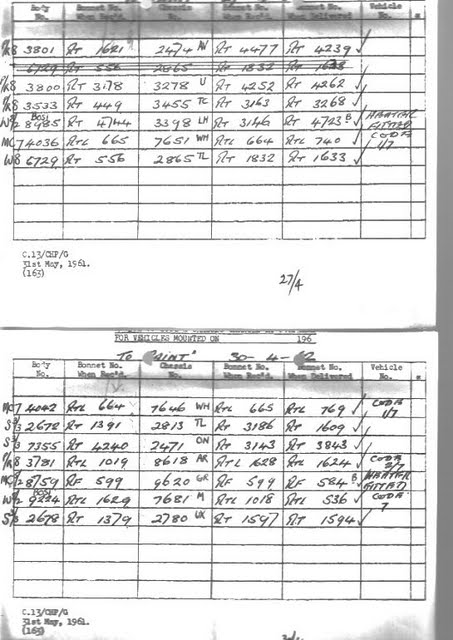 Body No. Bonnet No. When Rec'd. Chassis No. Bonnet No. When Delivered Vehicle No.
P/R8 3801 RT 1621 2474 AV RT 4477 RT 4239 ✓
6729 RT 556 2865 RT 1832 RT 1633
P/R8 3800 RT 3178 3278 U RT 4252 RT 4262 ✓
P/R8 3533 RT 449 3455 TC RT 3163 RT 3268 ✓
W3/2 8485 RT 4744 3398 LH RT 3146 RT 4723 B ✓ HEATER FITTED
MC7 4036 RTL 665 7651 WH RTL 664 RTL 740 ✓ CODA 1/7
W8 6729 RT 556 2865 TL RT 1832 RT 1633 ✓
C.13/CHP/G
31st May, 1961.
(163)
27/4
FOR VEHICLES MOUNTED ON 196
TO PAINT 30-4-62
Body No. Bonnet No. When Rec'd. Chassis No. Bonnet No. When Delivered Vehicle No.
MC7 4042 RTL 664 7646 WH RTL 665 RTL 769 ✓ CODA 1/7
S3/3 2678 RT 1391 2813 TL RT 3186 RT 1609 ✓
S3/3 7355 RT 4240 2471 ON RT 3143 RT 3843 ✓
P/R8 3781 RTL 1019 8618 AR RTL 1628 RTL 1624 ✓ CODA 2/7
8759 RF 599 9620 GR RF 599 RF 584 B ✓ HEATER FITTED
9224 RTL 1629 7681 M RTL 1018 RTL 536 ✓ CODA 7
S3/3 2678 RT 1379 2780 UX RT 1597 RT 1594 ✓
C.13/CHP/G
31st May, 1961.
(163)